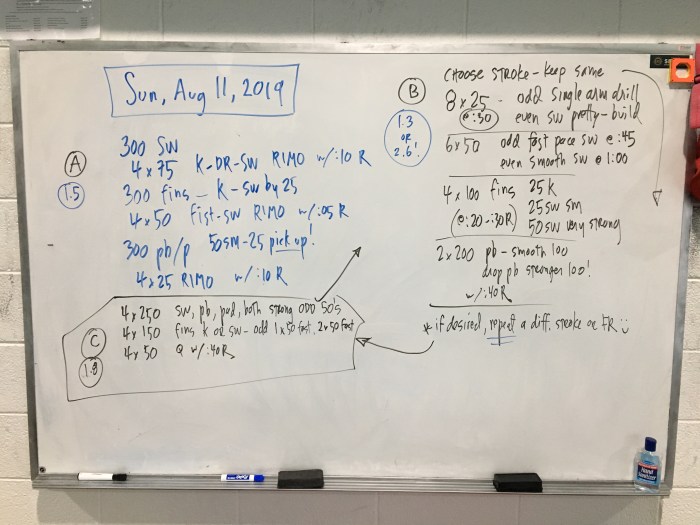 Sun, Aug 11, 2019
A
1.5
300 SW
4 x 75 K-DR-SW RIMO w/:10 R
300 fins - K-SW by 25
4 x 50 Fist-SW RIMO w/:05 R
300 pb/p 50sm-25 pick up!
4 x 25 RIMO w/:10 R
C
1.8
4 x 250 sw, pb, pad, both strong ODD 50's
4 x 150 fins K or sw - odd 1 x 50 fast, 2 x 50 fast
4 x 50 @ w/:40 R
B
1.3
OR
2.6!
CHOOSE STROKE - keep same
8 x 25 - odd single arm drill
@:30 even sw pretty-build
6 x 50 odd fast pace sw @ :45
even smooth sw @ 1:00
4 x 100 fins 25 K
(@:20-:30R) 25 sw sm
50 sw very strong
2 x 200 pb - smooth 100
drop pb stronger 100!
w/:40R
* if desired, repeat a diff. stroke or FR
Hand
Sanitizer
EXPO